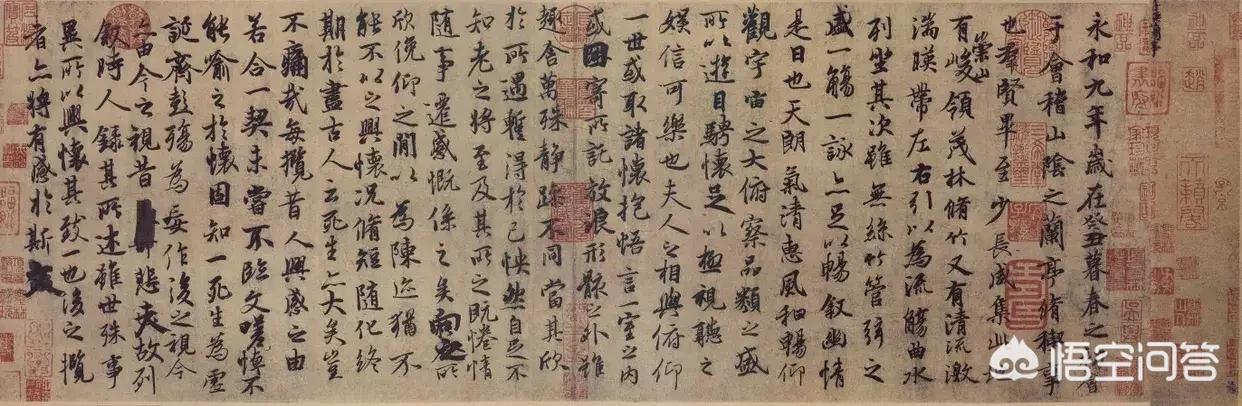 永和九年歲在癸丑暮春之初會
于會稽山陰之蘭亭脩稧事
也羣賢畢至少長咸集此地
有崇山峻領茂林脩竹又有清流激
湍暎帶左右引以為流觴曲水
列坐其次雖無絲竹管弦之
盛一觴一詠亦足以暢叙幽情
是日也天朗氣清惠風和暢仰
觀宇宙之大俯察品類之盛
所以遊目騁懷足以極視聽之
娛信可樂也夫人之相與俯仰
一世或取諸懷抱悟言一室之內
或因寄所託放浪形骸之外雖
趣舍萬殊静躁不同當其欣
於所遇暫得於己怏然自足不
知老之將至及其所之既惓情
隨事遷感慨係之矣向之所
欣俛仰之閒以為陳迹猶不
能不以之興懷況脩短隨化終
期於盡古人云死生亦大矣豈
不痛哉每攬昔人興感之由
若合一契未嘗不臨文嗟悼不
能喻之於懷固知一死生為虛
誕齊彭殤為妄作後之視今
亦由今之視昔悲夫故列
叙時人錄其所述雖世殊事
異所以興懷其致一也後之攬
者亦將有感於斯文
悟空问答